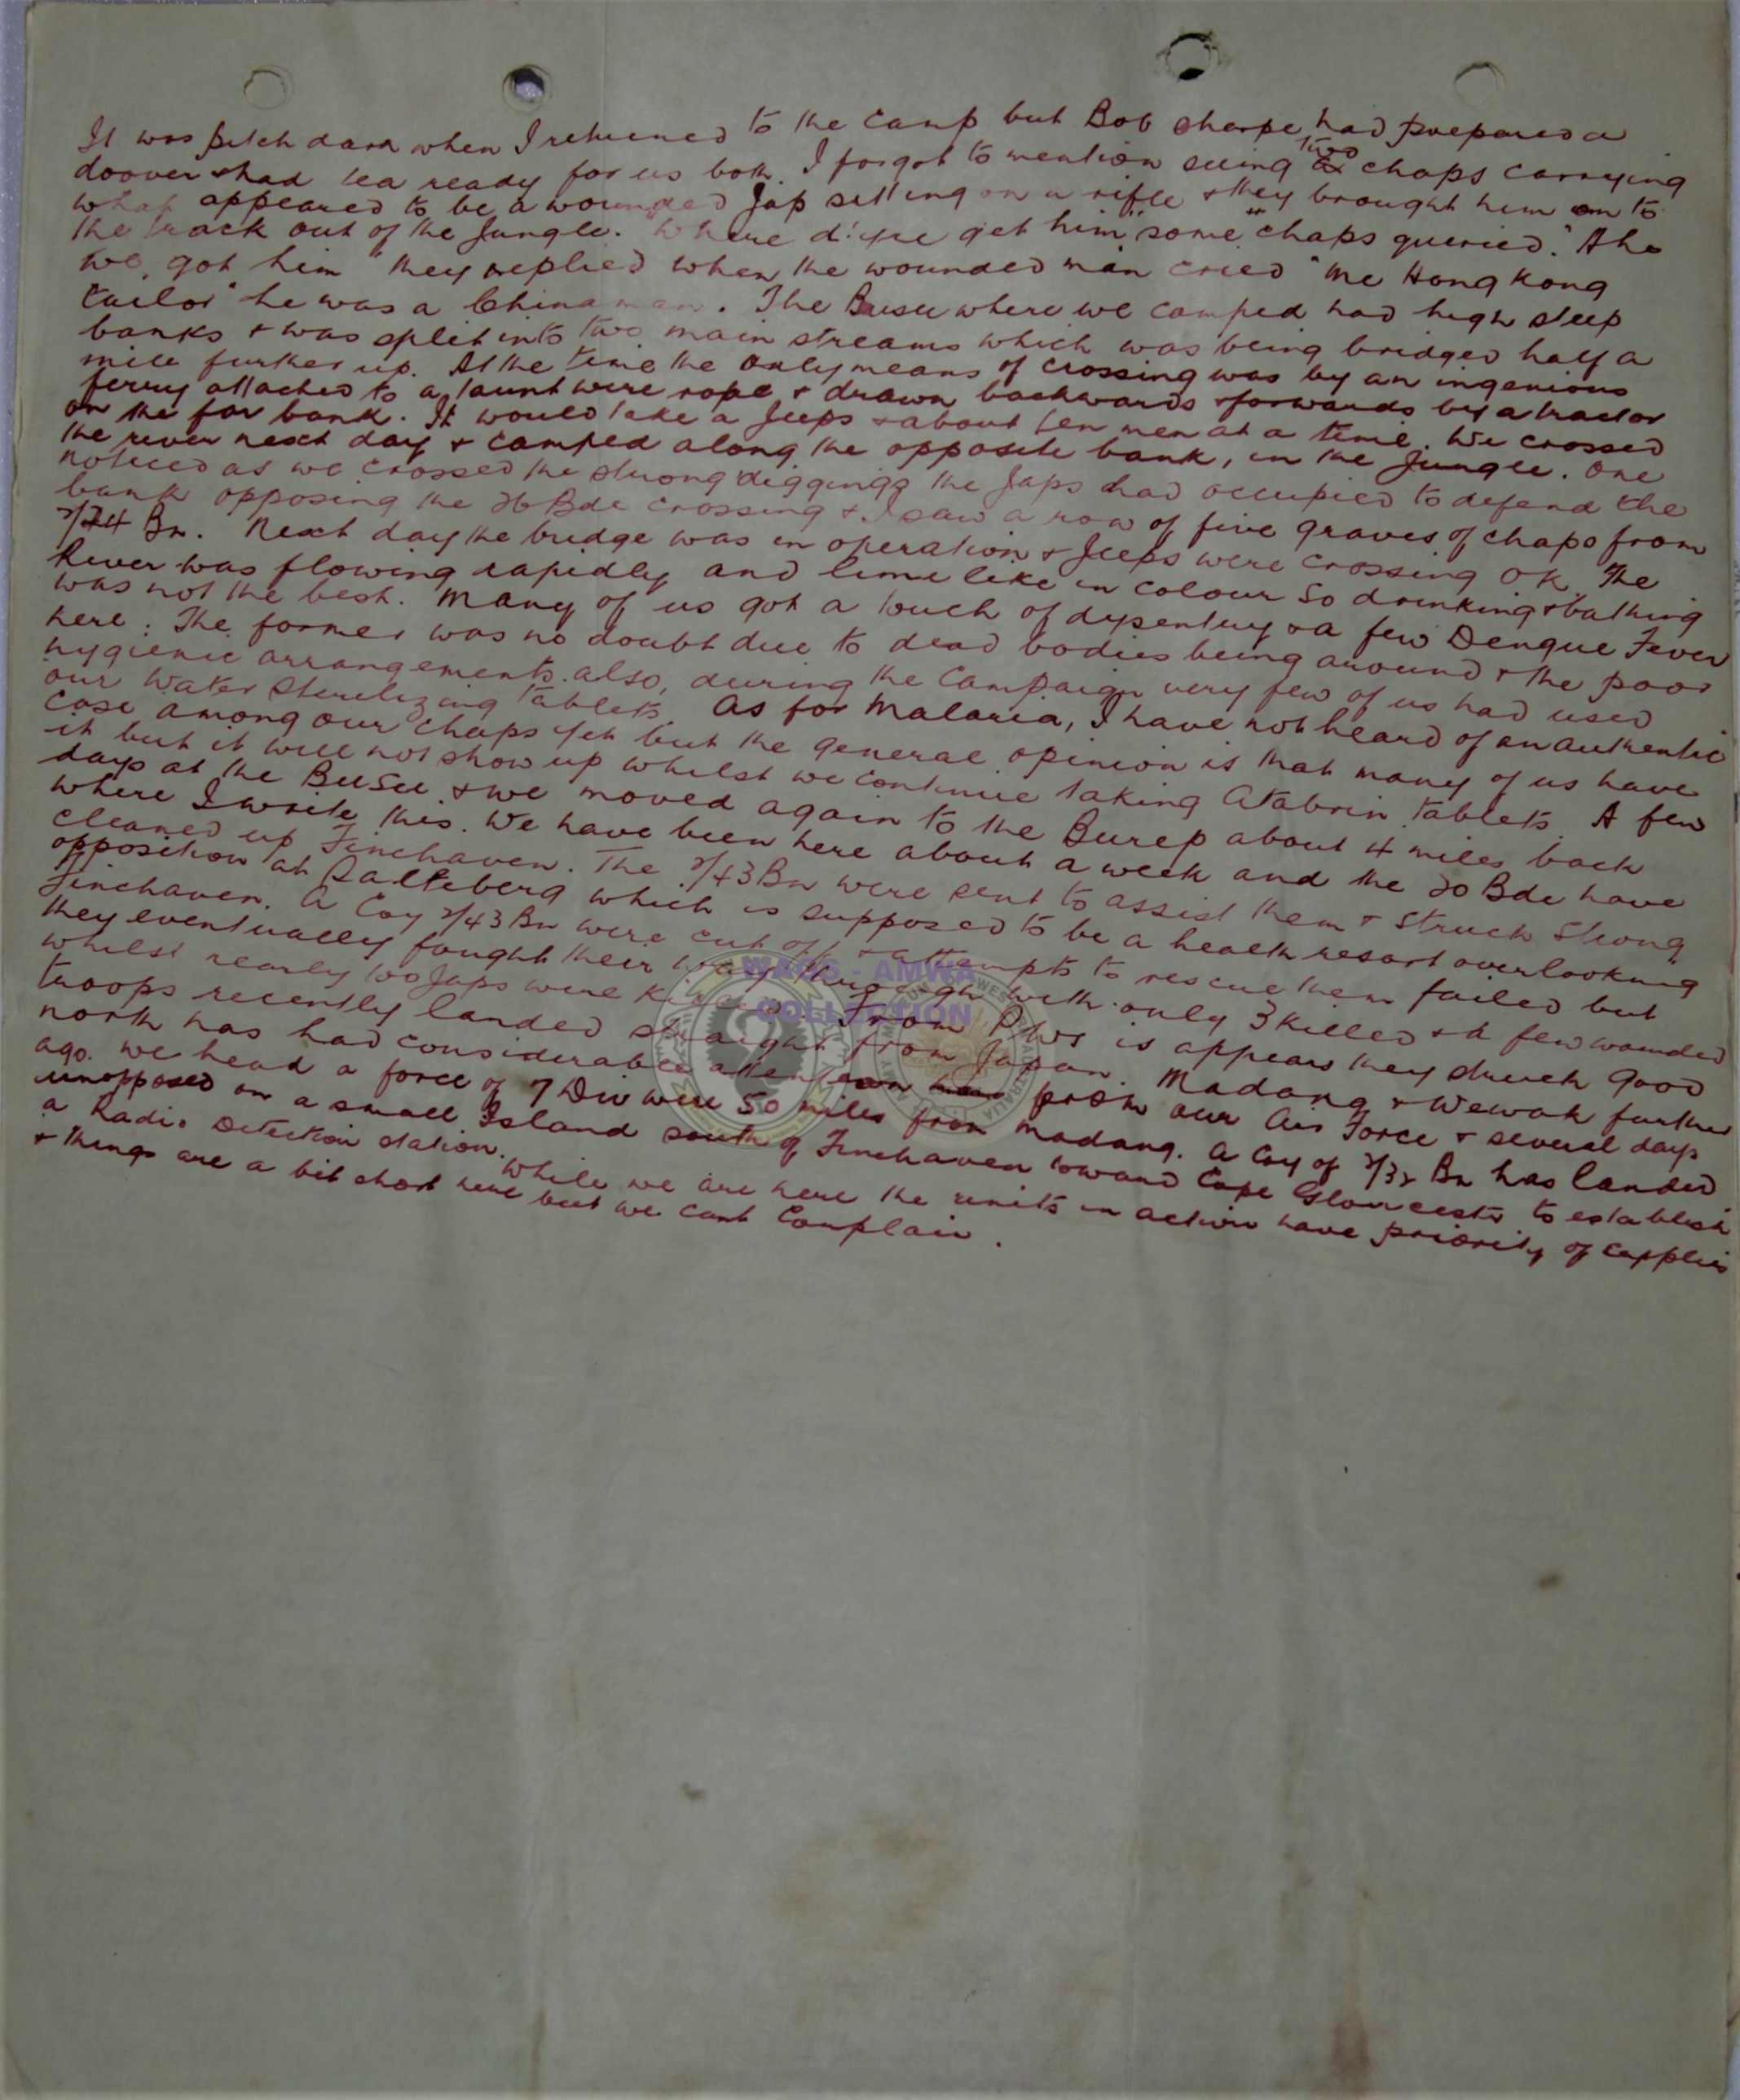 It was pitch dark when I returned to the Camp but Bob Sharpe had prepared a
doover & had tea ready for us both. I forgot to mention seeing two chaps carrying
what appeared to be a wounded Jap sitting on a rifle & they brought him on to
the track out of the Jungle. "Where d'yre get him" some "chaps queried." "Aho
we got him" they replied when the wounded man cried "Me Hong Kong
tailor" he was a Chinaman. The Busu where we camped had high steep
banks & was split into two main streams which was being bridged half a
mile further up. At the time the only means of crossing was by an ingenious
ferry attached to a taunt wire rope & drawn backwards & forwards by a tractor
on the far bank. It would take a Jeeps & about ten men at a time. We crossed
the river next day & camped along the opposite bank, in the Jungle. One
noticed as we crossed the strong diggings the Japs had occupied to defend the
bank opposing the 26 Bde crossing & I saw a row of five graves of chaps from
2/24 Bn. Next day the bridge was in operation & Jeeps were crossing OK. The
River was flowing rapidly and lime like in colour so drinking & bathing
was not the best. Many of us got a touch of dysentery & a few Dengue Fever
here. The former was no doubt due to dead bodies being around & the poor
hygienic arrangements. also, during the Campaign very few of us had used
our Water Sterilizing tablets. As for Malaria, I have not heard of an authentic
case among our chaps yet but the general opinion is that many of us have
it but it will not show up whilst we continue taking Atabrin tablets. A few
days at the Busu & we moved again to the Burep about 4 miles back
where I write this. We have been here about a week and the 20 Bde have
cleaned up Finchaven. The 2/43 Bn were sent to assist them & struck strong
opposition at Satteberg which is supposed to be a health resort overlooking
Finchaven. A Coy 2/43 Bn were cut off & attempts to rescue them failed but
they eventually fought their way through with only 3 killed & a few wounded
whilst nearly 100 Japs were killed. From PWs is appears they struck good
troops recently landed straight from Japan. Madang & Wewak further
north has had considerable attention from our Air Force & several days
ago. we head a force of 7 Div were 50 miles from Madang. A Coy of 2/32 Bn has landed
unopposed on a small Island south of Finchaven toward Cape Gloucester to establish
a Radio Detection station. While we are here the units in action have priority of supplies
& things are a bit short here but we cant Complain.
WAGS - AMWA
COLLECTION